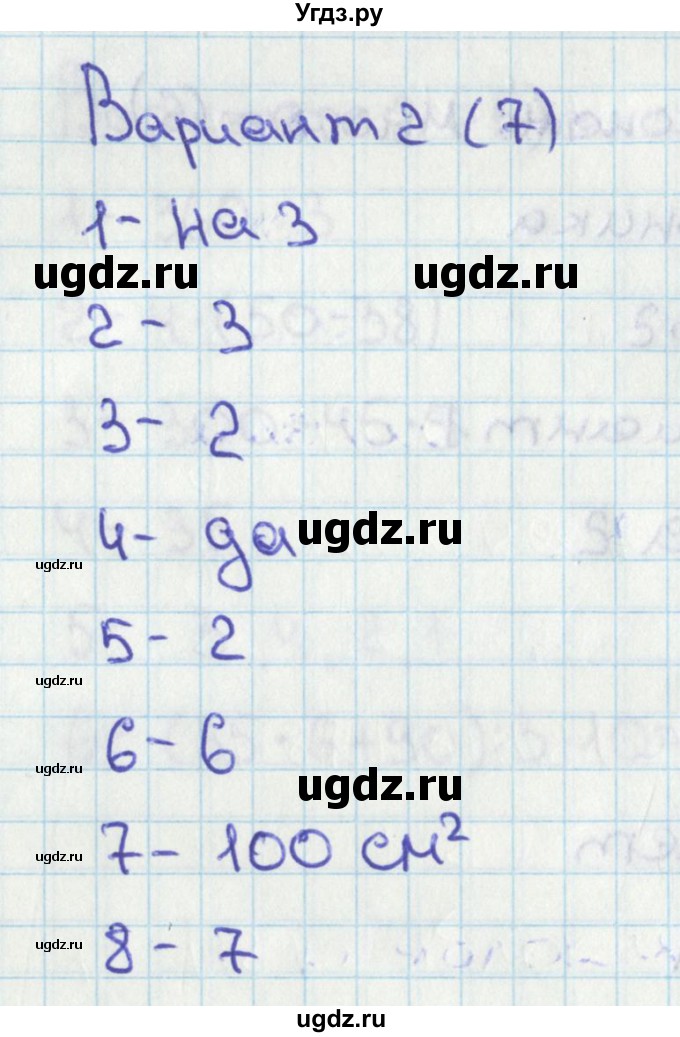 Угдз.ру
Вариант 2 (7)
1 - на 3
ugdz.ru ugdz.ru
2 - 3
3 - 2
4 - да
ugdz.ru
ugdz.ru
5 - 2
ugdz.ru
6 - 6
ugdz.ru
ugdz.ru
7 - 100 см²
ugdz.ru
8 - 7
ugdz.ru
ugdz.ru